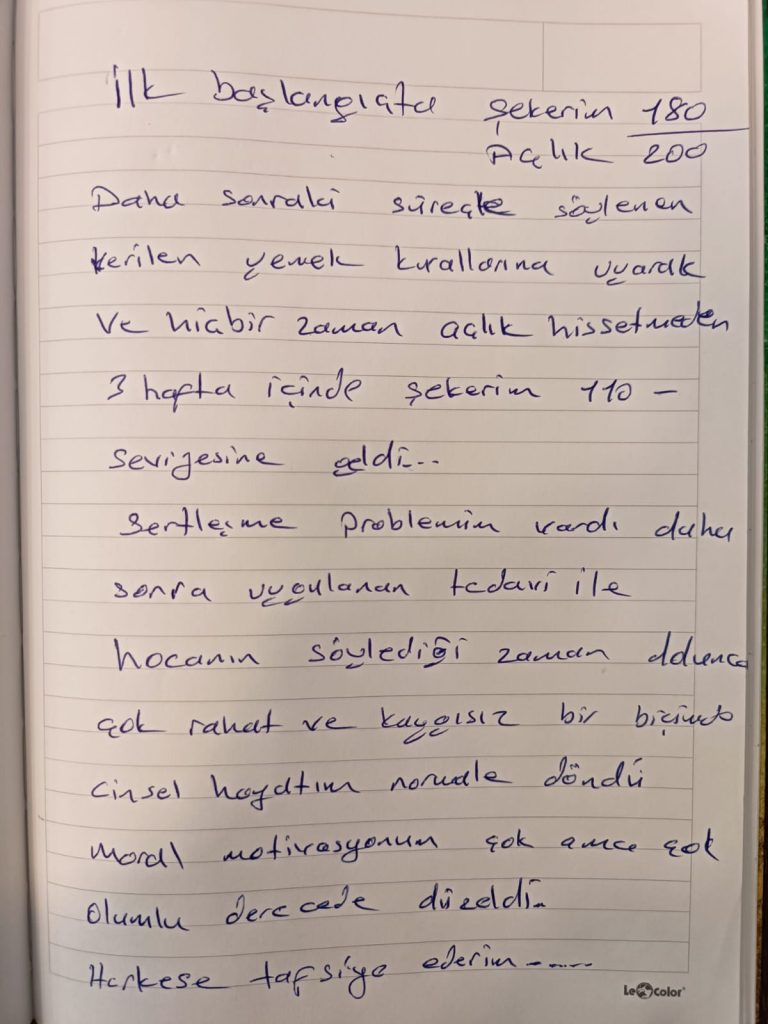 İlk başlangıçta şekerim 180
Açlık 200
Daha sonraki süreçte söylenen
verilen yemek kurallarına uyarak
ve hiçbir zaman açlık hissetmeden
3 hafta içinde şekerim 110 -
seviyesine geldi...
Sertleşme problemim vardı daha
sonra uygulanan tedavi ile
hocanın söylediği zaman dolunca
çok rahat ve kaygısız bir biçimde
cinsel hayatım normale döndü
Moral motivasyonum çok çok
Olumlu derecede düzeldi..
Herkese tafsiye ederim ......
Le Color